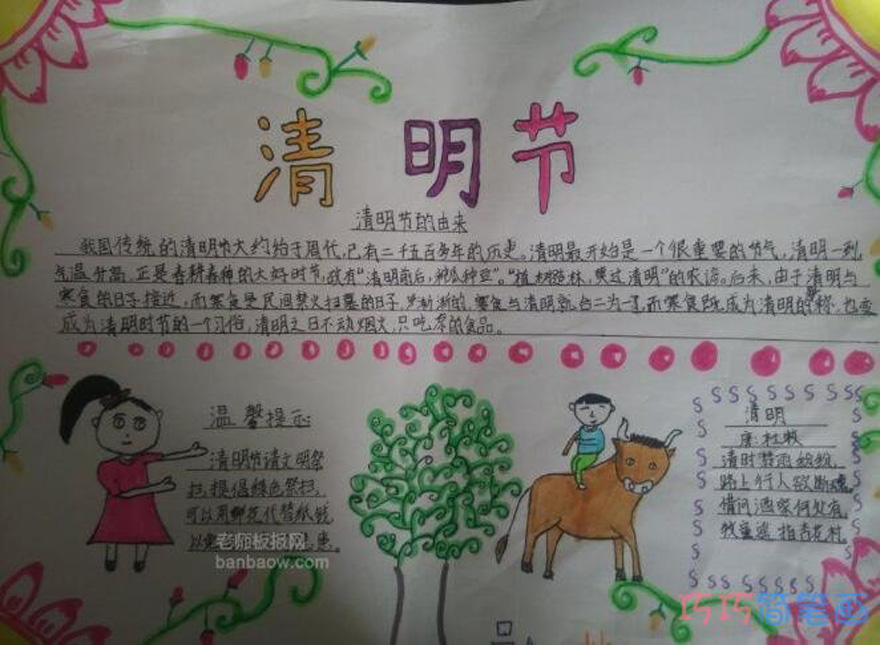 清明节
清明节的由来
我国传统的清明节大约始于周代,已有二千五百多年的历史。清明最开始是一个很重要的节气,清明一到
气温升高,正是春耕春种的大好时节,故有“清明前后,种瓜种豆”。“植树造林,莫过清明”的农谚。后来,由于清明与
寒食的日子接近,而寒食是民间禁火扫墓的日子,渐渐的,寒食与清明就合二为一,而寒食既成为清明的别称,也变
成为清明时节的一个习俗,清明之日不动烟火,只吃凉的食品。
温馨提示
清明节请文明祭
扫,提倡绿色祭扫,
可以用鲜花代替纸钱
以 患。
清明
唐:杜牧
清时节雨纷纷,
路上行人欲断魂
借问酒家何处有,
牧童遥指杏花村
老师板报网
banbaow.com
巧巧简笔画